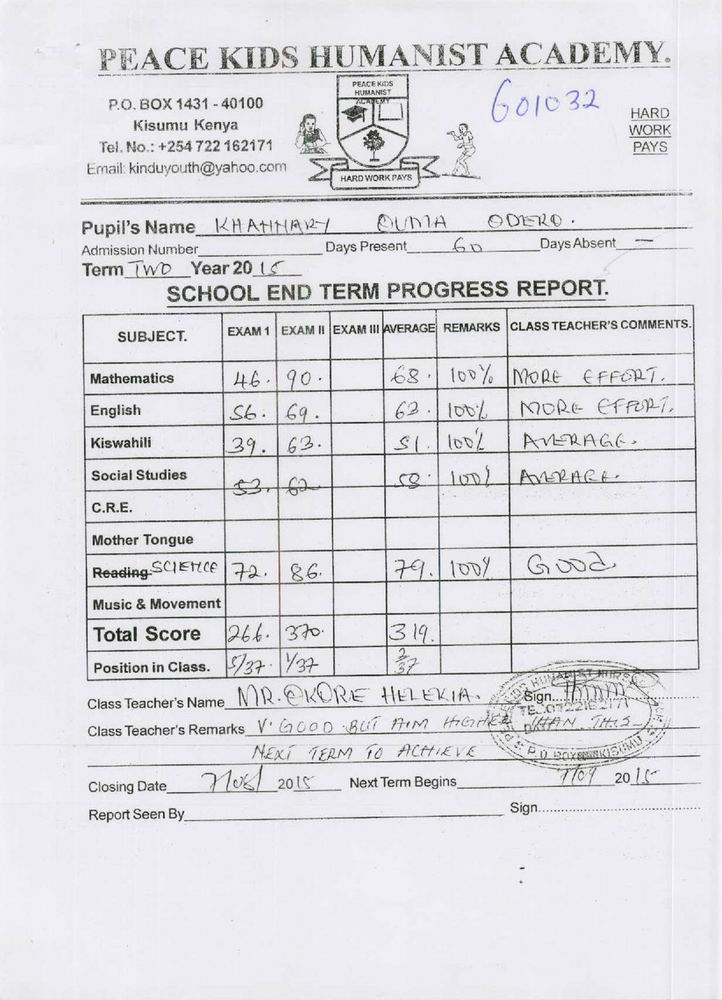 PEACE KIDS HUMANIST ACADEMY.
P.O. BOX 1431 - 40100
Kisumu Kenya
Tel. No.: +254 722 162171
Email: kinduyouth@yahoo.com
PEACE KIDS
HUMANIST
ACADEMY
HARD WORK PAYS
601032
HARD
WORK
PAYS
Pupil's Name KHAHHARY OUMA ODERO.
Admission Number Days Present 60 Days Absent —
Term TWO Year 20 15
SCHOOL END TERM PROGRESS REPORT.
SUBJECT. EXAM 1 EXAM II EXAM III AVERAGE REMARKS CLASS TEACHER'S COMMENTS.
Mathematics 46. 90. 68. 100% MORE EFFORT.
English 56. 69. 63. 100% MORE EFFORT.
Kiswahili 39. 63. 51. 100% AVERAGE.
Social Studies 53. 62 58. 100% AVERAGE.
C.R.E.
Mother Tongue
Reading SCIENCE 72. 86. 79. 100% GOOD
Music & Movement
Total Score 266. 370. 319.
Position in Class. 5/37. 1/37 2/37
Class Teacher's Name MR. OKORE HELEKIA. Sign...
Class Teacher's Remarks V. GOOD BUT AIM HIGHER THAN THIS
NEXT TERM TO ACHIEVE
Closing Date 7/08/ 2015 Next Term Begins 7/09 2015
Report Seen By Sign...